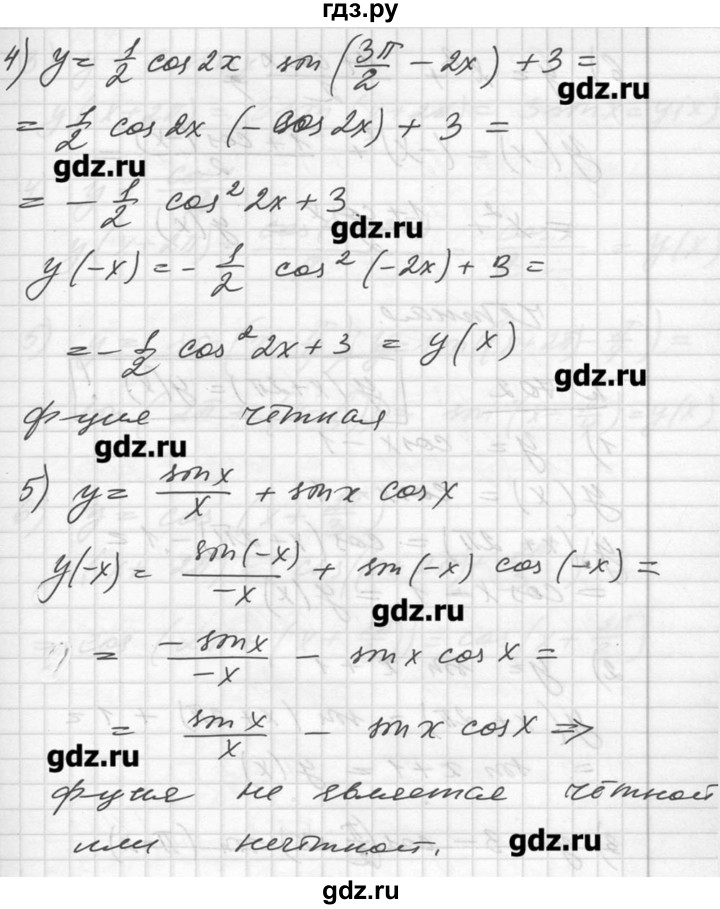 гдз.ру
4) y = 1/2 cos 2x sin(3π/2 − 2x) + 3 =
gdz.ru
= 1/2 cos 2x (− cos 2x) + 3 =
gdz.ru
= − 1/2 cos² 2x + 3
gdz.ru
y(−x) = − 1/2 cos² (−2x) + 3 =
= − 1/2 cos² 2x + 3 = y(x)
gdz.ru
ф-ция чётная
gdz.ru
5) y = sin x / x + sin x cos x
y(−x) = sin(−x) / −x + sin(−x) cos(−x) =
gdz.ru
= − sin x / −x − sin x cos x =
= sin x / x − sin x cos x ⇒
gdz.ru
ф-ция не является чётной
или нечётной.
gdz.ru
gdz.ru